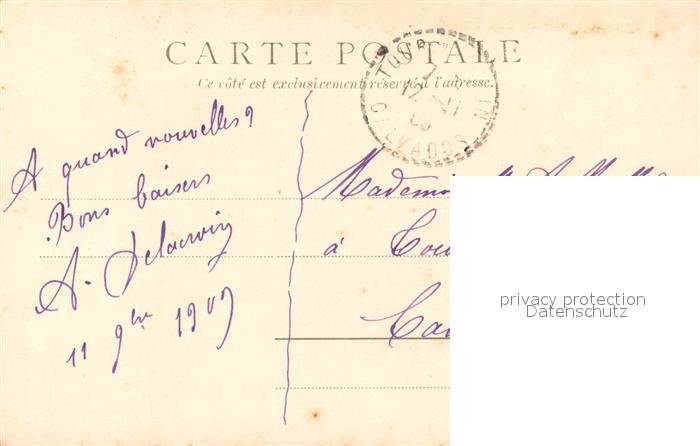 CARTE POSTALE
Ce côté est exclusivement réservé à l'adresse.
TOUR
12
CALVADOS
A quand nouvelles?
Bons baisers
A. Delacroix
11 9bre 1909
à
privacy protection
Datenschutz